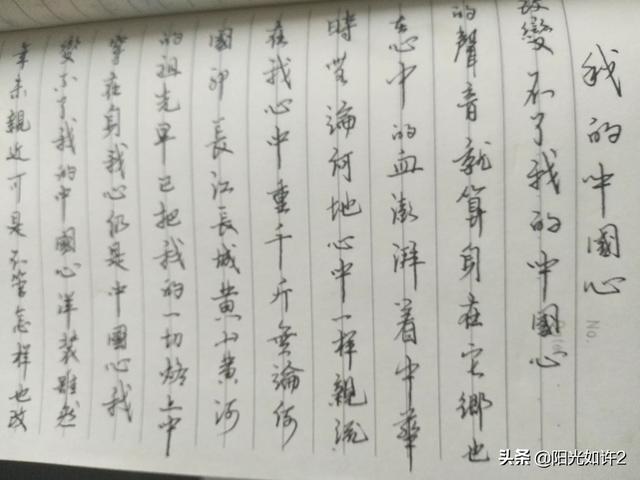 我的中國心
年未親近可是不管怎樣也改
變不了我的中國心洋裝雖然
穿在身我心仍是中國心我
的祖先早已把我的一切烙上中
國印長江長城黃山黃河
在我心中重千斤無論何
時無論何地心中一樣親流
在心中的血澎湃着中華
的聲音就算身在它鄉也
改變不了我的中國心
No.
头条 @阳光如许2